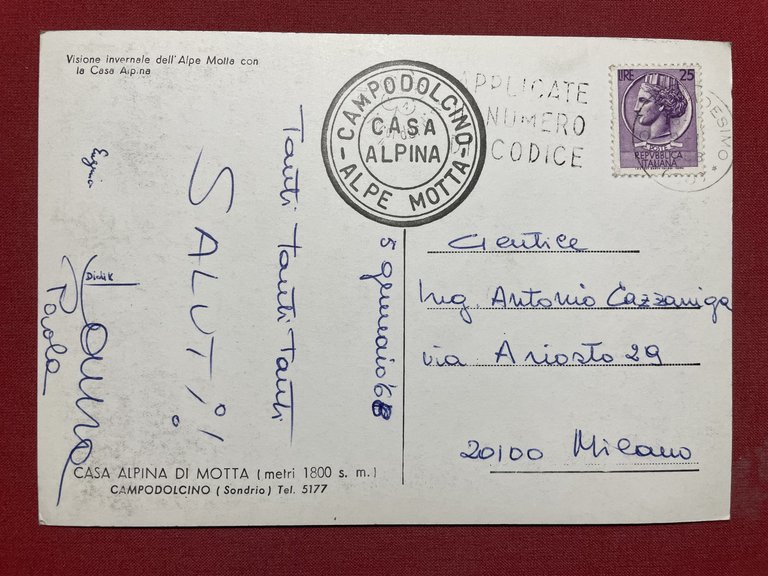 Visione invernale dell'Alpe Motta con
la Casa Alpina
CAMPODOLCINO
CASA
ALPINA
- ALPE MOTTA -
APPLICATE
NUMERO
CODICE
LIRE 25
POSTE
REPVBBLICA
ITALIANA
DESIMO
5 gennaio '68
Tanti Tanti Tanti
SALUTI!
Eugenia
Paola
Laura
Gentile
Ing. Antonio Cazzaniga
via Ariosto 29
20100 Milano
CASA ALPINA DI MOTTA (metri 1800 s. m.)
CAMPODOLCINO (Sondrio) Tel. 5177